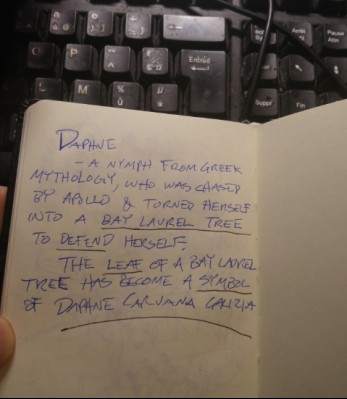 O
P
Entrée
L
M
%
ù
Suppr
Fin
Pause
DAPHNE
- A NYMPH FROM GREEK
MYTHOLOGY, WHO WAS CHASED
BY APOLLO & TURNED HERSELF
INTO A BAY LAUREL TREE
TO DEFEND HERSELF.
THE LEAF OF A BAY LAUREL
TREE HAS BECOME A SYMBOL
OF DAPHNE CARUANA GALIZIA